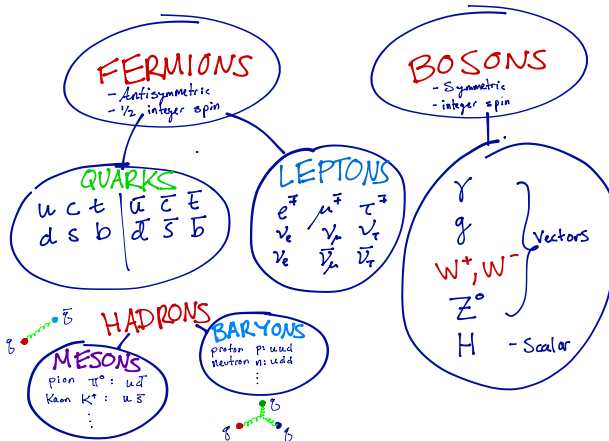 FERMIONS
- Antisymmetric
- 1/2 integer spin
BOSONS
- Symmetric
- integer spin
QUARKS
u c t | ū c̄ t̄
d s b | d̄ s̄ b̄
LEPTONS
e∓ μ∓ τ∓
νe νμ ντ
νe ν̄μ ν̄τ
γ
g
W⁺, W⁻
Z⁰
H - Scalar
Vectors
HADRONS
q q̄
MESONS
pion π⁰: ud̄
Kaon K⁺: us̄
⋮
BARYONS
proton p: uud
neutron n: udd
⋮
q q q